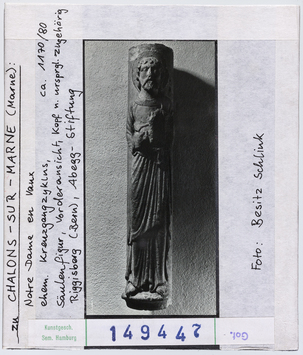 zu CHÂLONS-SUR-MARNE (Marne):
Notre Dame en Vaux
ehem. Kreuzgangzyklus,
Säulenfigur, Vorderansicht, Kopf n. ursprgl. zugehörig
ca. 1170/80
Riggisberg (Bern), Abegg-Stiftung
Foto: Besitz Schlink
Kunstgesch.
Sem. Hamburg
149442
Gal.